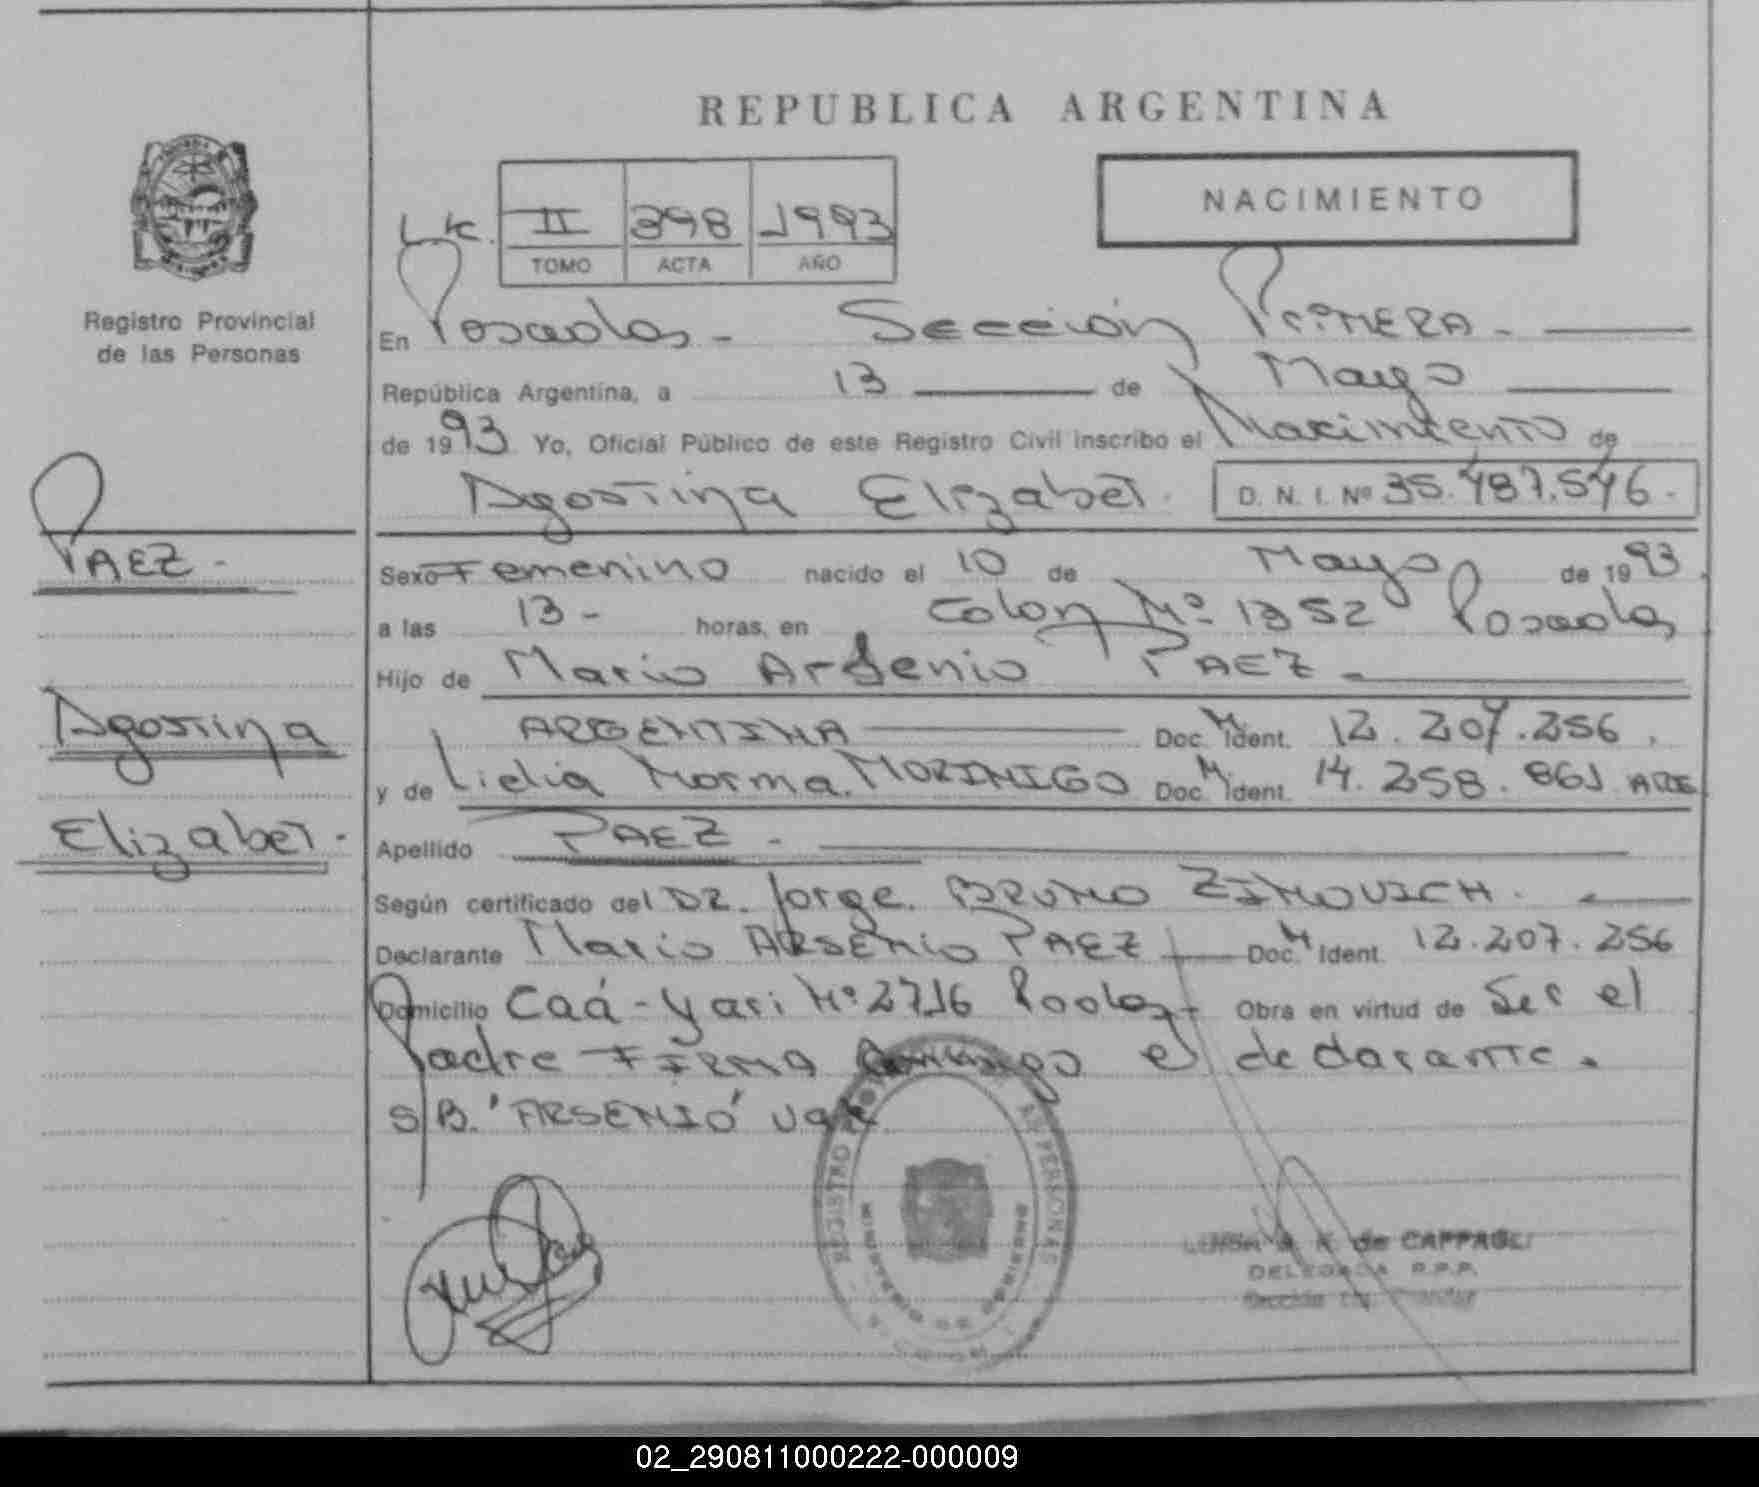 REPUBLICA ARGENTINA
NACIMIENTO
II 398 1993
TOMO ACTA AÑO
Registro Provincial
de las Personas
En Posadas - Sección PriMERA -
República Argentina, a 13 de Mayo
de 1993 Yo, Oficial Público de este Registro Civil inscribo el Nacimiento de
Agostina Elizabet. D. N. I. Nº 35.487.546.
PAEZ -
Agostina
Elizabet.
Sexo Femenino nacido el 10 de Mayo de 1993
a las 13 - horas, en Colon Nº 1352 Posadas
Hijo de Mario Arsenio PAEZ
ARGENTINA Doc. M Ident. 12.207.256.
y de Lidia Norma MORINIGO Doc. M Ident. 14.258.861 ARG
Apellido PAEZ -
Según certificado del DR. Jorge BRUNO ZINOVICH.
Declarante Mario ARSENIO PAEZ Doc. M Ident. 12.207.256
Domicilio Caá-Yari Nº 2716 Pdas. Obra en virtud de Ser el
Padre FIRMA conmigo el declarante.
S/B. 'ARSENIO' vale
REGISTRO PERSONAS
MINISTERIO DE GOBIERNO
de CAPPAGLI
DELEGADA R.P.P.
02_290811000222-000009